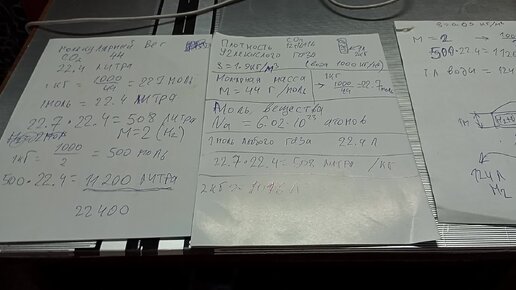 Молекулярный вес
CO2 44
22.4 литра
1 кг = 1000/44 = 22.7 моль
1 моль = 22.4 литра
22.7 · 22.4 = 508 литра
M=2 (H2)
1 кг = 1000/2 = 500 моль
500 · 22.4 = 11200 литра
22400
Плотность CO2
углекислого газа
(вода 1000 кг/м3)
Молярная масса
M = 44 г/моль
1 кг
→ 1000/44 = 22.7 моль
Моль вещества
Na = 6.02 · 10^23 атомов
1 моль любого газа 22.4 л
22.7 · 22.4 = 508 литра /кг
M = 2 →
500 · 22.4 = 1120
1 л воды = 124
124 л
H2